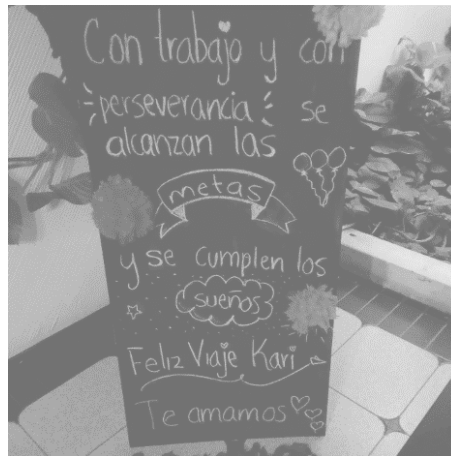 Con trabajo y con
perseverancia se
alcanzan las
metas
y se cumplen los
sueños
Feliz Viaje Kari
Te amamos